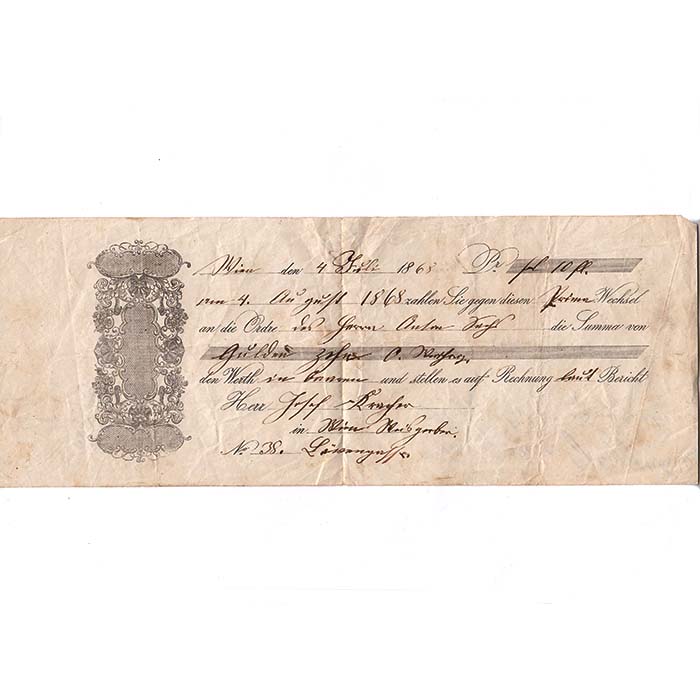 Wien den 4 Juli 1868 Pr fl 10 fl.
am 4. August 1868 zahlen Sie gegen diesen Prima Wechsel
an die Ordre des Herrn Anton die Summa von
Gulden zehn Ö. Währg.
den Werth in baaren und stellen es auf Rechnung laut Bericht
Herr Josef Kracher
in Wien Weisgerber.
No 38. Löwengasse